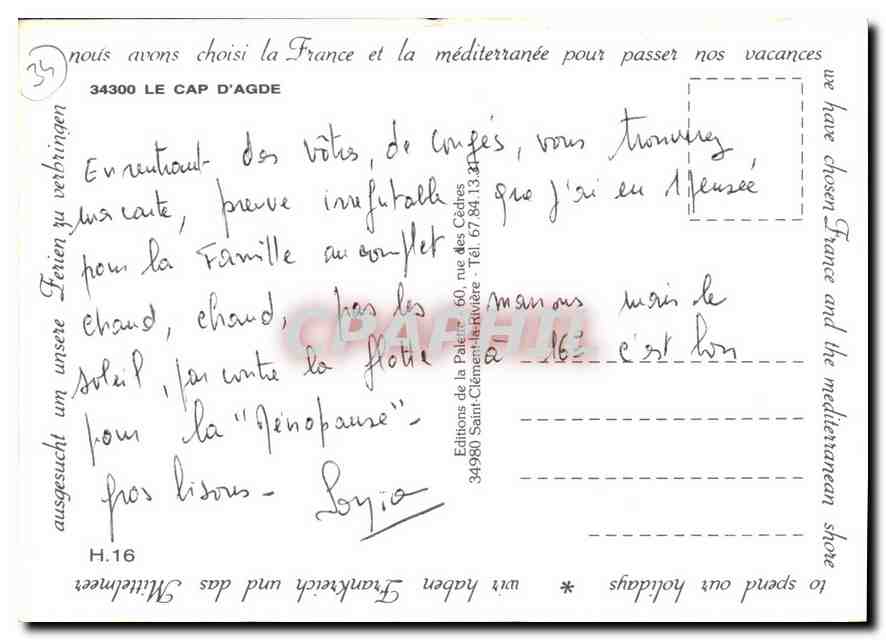 34
nous avons choisi la France et la méditerranée pour passer nos vacances
we have chosen France and the mediterranean shore
to spend our holidays * wir haben Frankreich und das Mittelmeer
ausgesucht um unsere Ferien zu verbringen
34300 LE CAP D'AGDE
En rentrant des vôtres, de congés, vous trouverez
ma carte, preuve irréfutable que j'ai eu 1 pensée
pour la Famille au complet.
chaud, chaud, pas les marrons mais le
soleil, par contre la flotte à 16° c'est bon
pour la "Ménopause" -
gros bisous - Sonia
Editions de la Palette 60, rue des Cèdres
34980 Saint-Clément-la-Rivière - Tél. 67.84.13.31
H.16
CPAPHIL